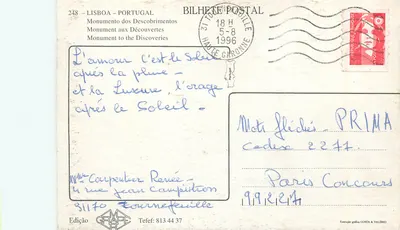 248 - LISBOA - PORTUGAL
Monumento dos Descobrimentos
Monument aux Découvertes
Monument to the Discoveries
BILHETE POSTAL
18 H
5-8
1996
HAUTE GARONNE
L'amour c'est le Soleil
après la pluie -
et la Luxure, l'orage
après le Soleil -
Mme Carpentier Renée -
4 rue Jean Campistron
31170 Tournefeuille
Mots fléchés - PRIMA
Cedex 2277.
Paris Concours
99227
Edição
Telef: 813 44 37